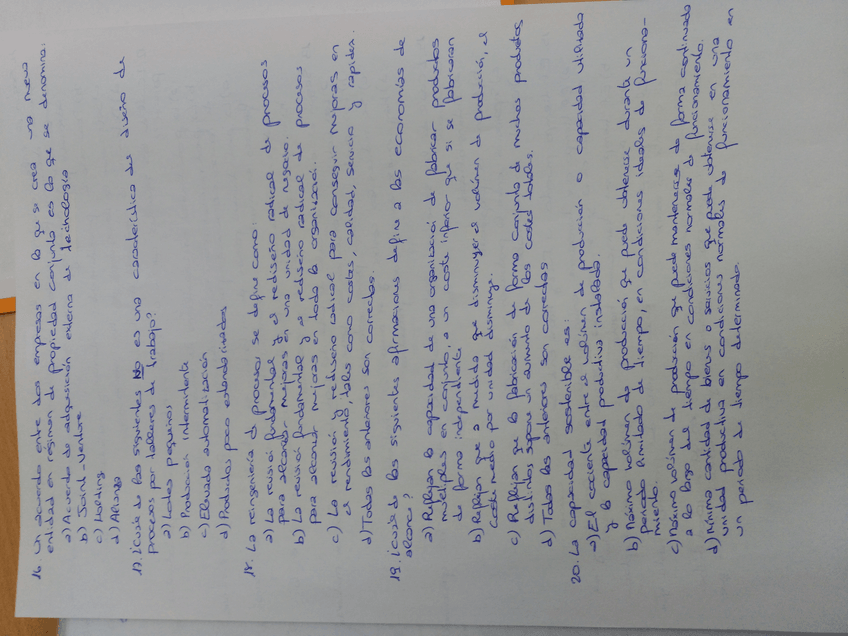 16. Un acuerdo entre dos empresas en la que si crea una nueva
entidad en régimen de propiedad conjunta es lo que se denomina:
a) Acuerdo de adquisición externa de tecnología
b) Joint-Venture
c) Holding
d) Alianza
17. ¿Cuál de las siguientes NO es una característica del diseño de
procesos por talleres de trabajo?
a) Lotes pequeños
b) Producción intermitente
c) Elevada automatización
d) Productos poco estandarizados
18. La reingeniería de procesos se define como:
a) La revisión fundamental y el rediseño radical de procesos
para alcanzar mejoras en una unidad de negocio.
b) La revisión fundamental y el rediseño radical de procesos
para alcanzar mejoras en toda la organización.
c) La revisión y rediseño radical para conseguir mejoras en
el rendimiento, tales como costes, calidad, servicio y rapidez.
d) Todas las anteriores son correctas.
19. ¿Cuál de las siguientes afirmaciones define a las economías de
alcance?
a) Reflejan la capacidad de una organización de fabricar productos
múltiples en conjunto, a un coste inferior que si se fabricaran
de forma independiente.
b) Reflejan que a medida que disminuye el volúmen de producción, el
coste medio por unidad disminuye.
c) Reflejan que la fabricación de forma conjunta de muchos productos
distintos supone un aumento de los costes totales.
d) Todas las anteriores son correctas
20. La capacidad sostenible es:
a) El cociente entre el volúmen de producción o capacidad utilizada
y la capacidad productiva instalada.
b) Máximo volúmen de producción que puede obtenerse durante un
periodo limitado de tiempo, en condiciones ideales de funciona-
miento.
c) Máximo volúmen de producción que puede mantenerse de forma continuada
a lo largo del tiempo en condiciones normales de funcionamiento.
d) Mínima cantidad de bienes o servicios que puede obtenerse en una
unidad productiva en condiciones normales de funcionamiento en
un periodo de tiempo determinado.